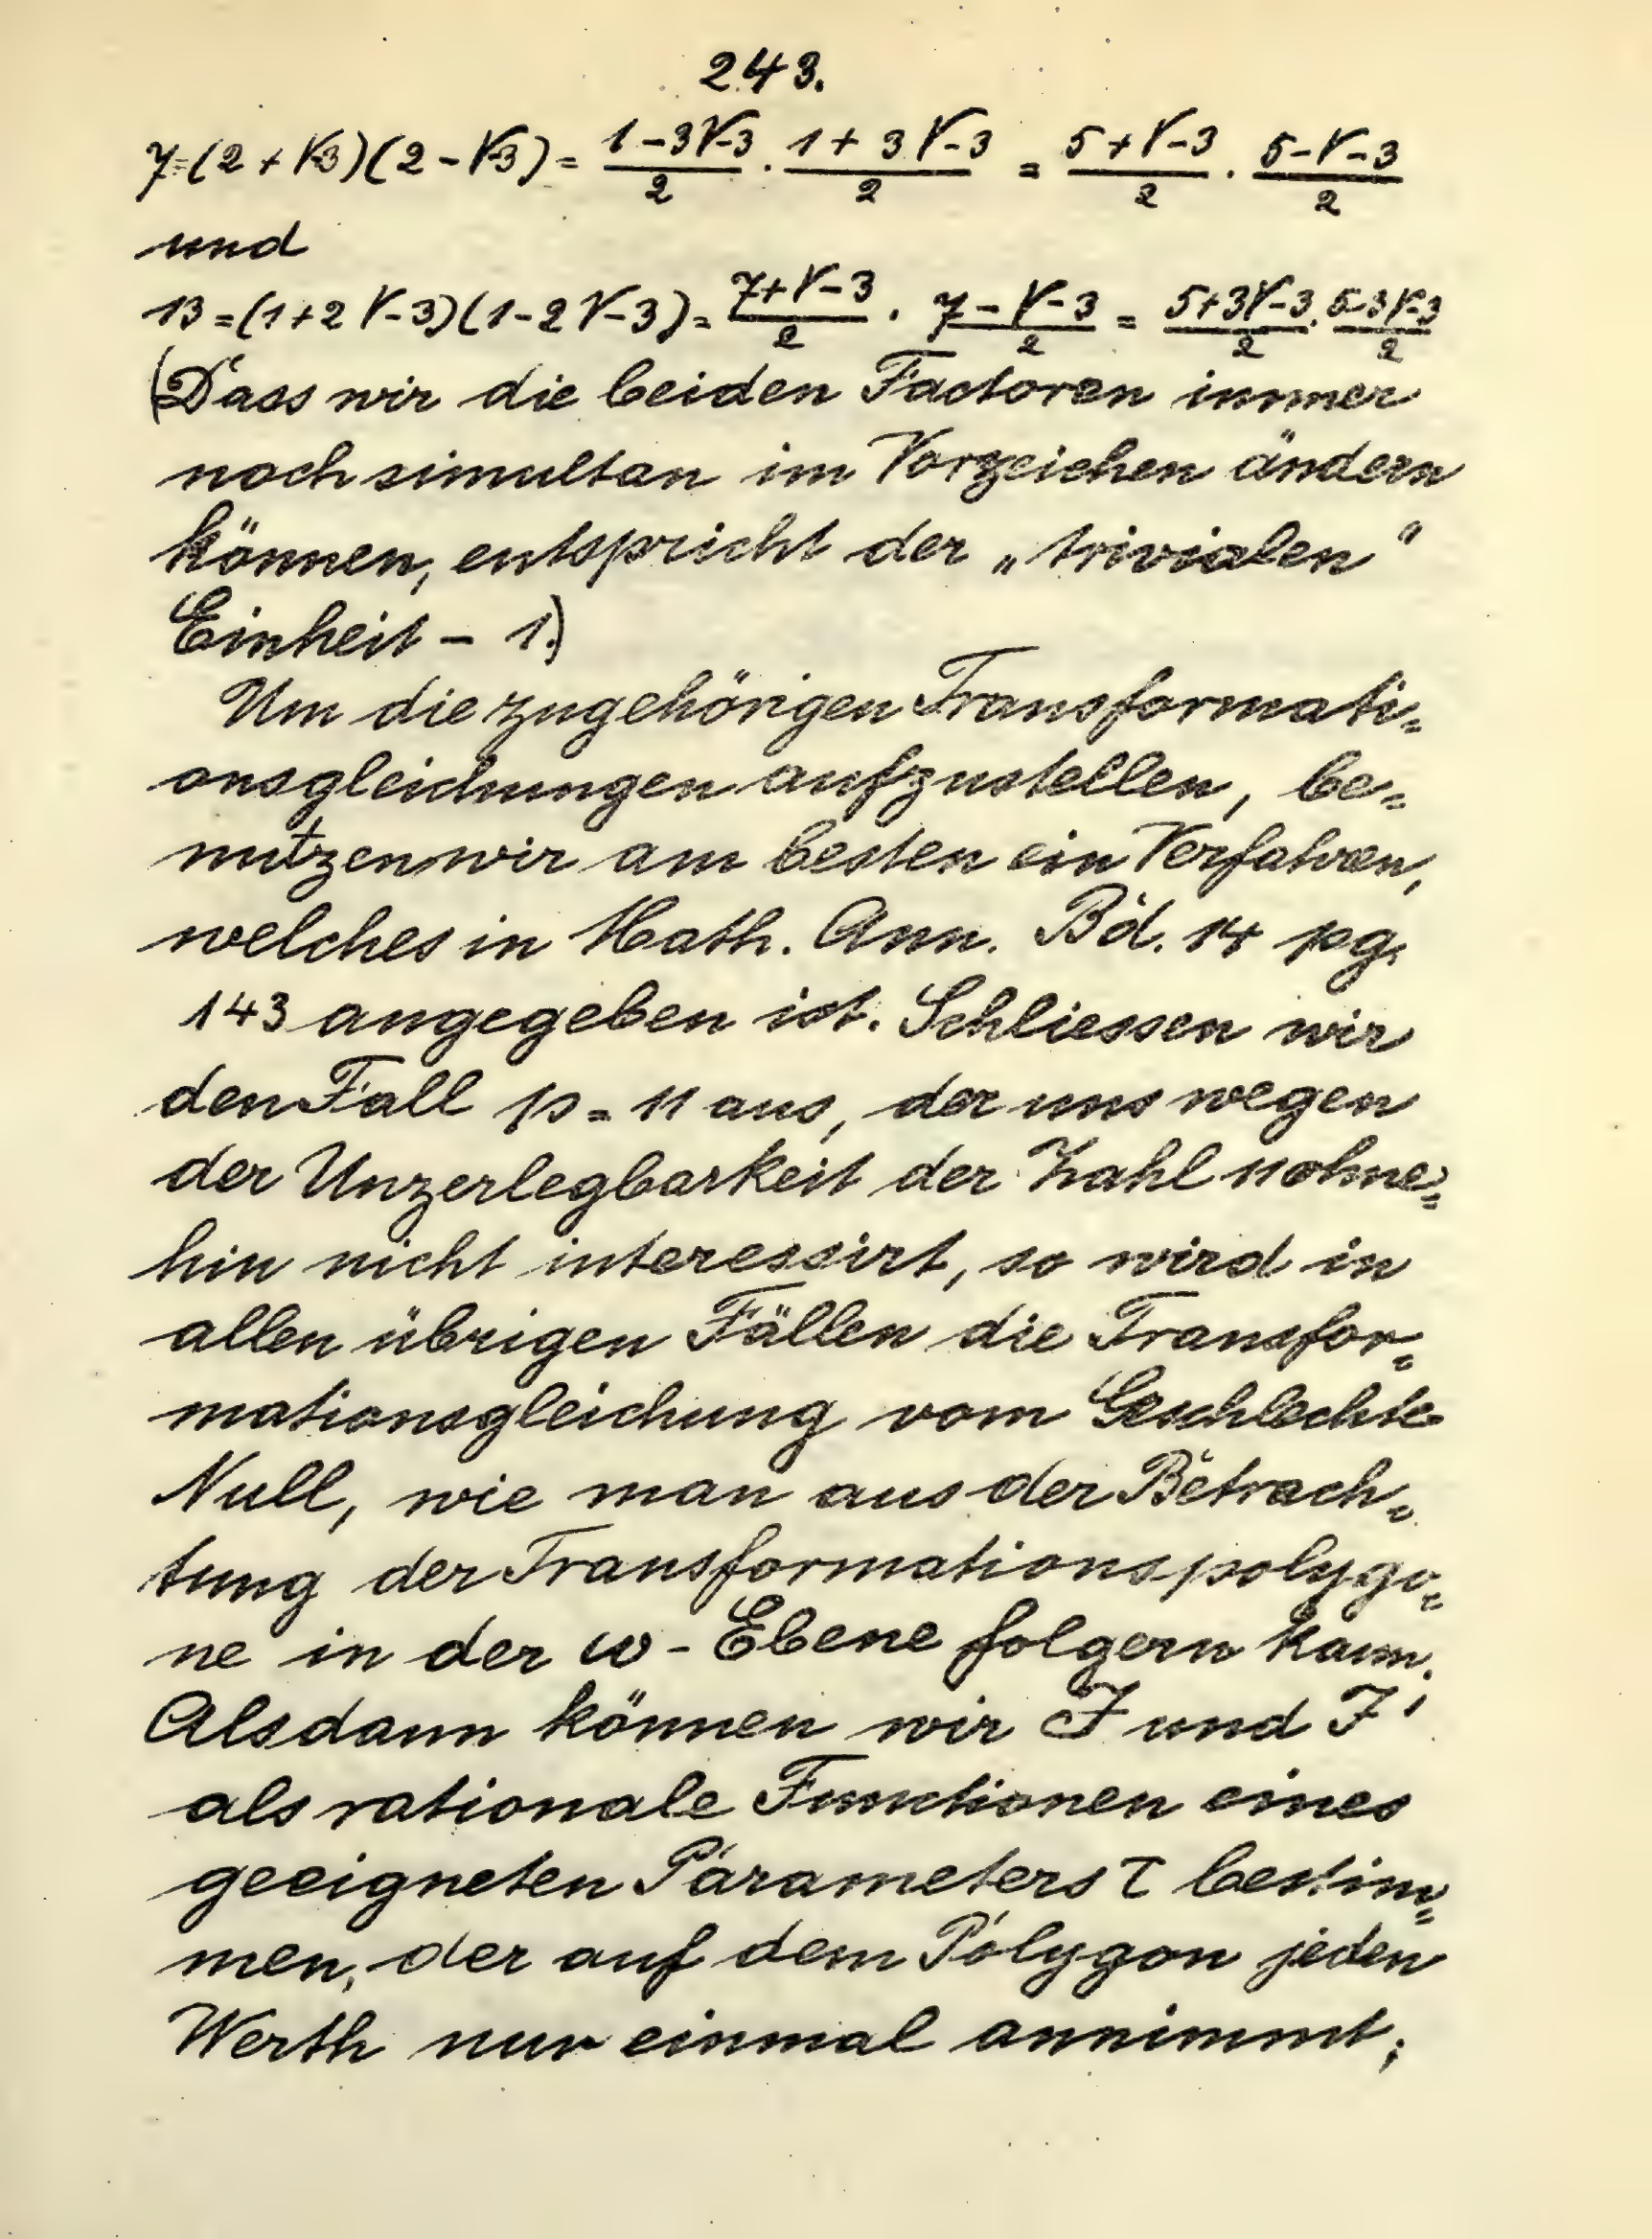 243.
7=(2+√-3)(2-√-3)= (1-3√-3)/2 · (1+3√-3)/2 = (5+√-3)/2 · (5-√-3)/2
und
13=(1+2√-3)(1-2√-3)= (7+√-3)/2 · (7-√-3)/2 = (5+3√-3)/2 · (5-3√-3)/2
(Dass wir die beiden Factoren immer
noch simultan im Vorzeichen ändern
können, entspricht der „trivialen"
Einheit - 1.)
Um die zugehörigen Transformati=
onsgleichungen aufzustellen, be=
nutzen wir am besten ein Verfahren,
welches in Math. Ann. Bd. 14 pg.
143 angegeben ist. Schliessen wir
den Fall p = 11 aus, der uns wegen
der Unzerlegbarkeit der Zahl 11 ohne=
hin nicht interessirt, so wird in
allen übrigen Fällen die Transfor=
mationsgleichung vom Geschlechte
Null, wie man aus der Betrach=
tung der Transformationspolygo=
ne in der ω-Ebene folgern kann.
Alsdann können wir J und J'
als rationale Functionen eines
geeigneten Parameters τ bestim=
men, der auf dem Polygon jeden
Werth nur einmal annimmt;